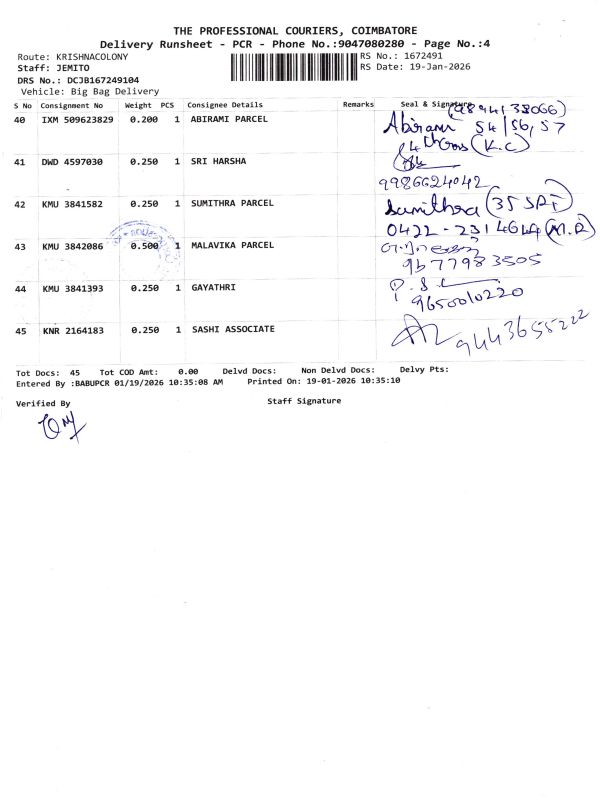 THE PROFESSIONAL COURIERS, COIMBATORE
Delivery Runsheet - PCR - Phone No.:9047080280 - Page No.:4
Route: KRISHNACOLONY RS No.: 1672491
Staff: JEMITO RS Date: 19-Jan-2026
DRS No.: DCJB167249104
Vehicle: Big Bag Delivery
S No Consignment No Weight PCS Consignee Details Remarks Seal & Signature
40 IXM 509623829 0.200 1 ABIRAMI PARCEL Abirami 54/56,57
4th Cross (K.C)
41 DWD 4597030 0.250 1 SRI HARSHA
9986624042
42 KMU 3841582 0.250 1 SUMITHRA PARCEL Sumithra
0422-2314644 (M.R)
43 KMU 3842086 0.500 1 MALAVIKA PARCEL
9677983505
44 KMU 3841393 0.250 1 GAYATHRI
9650010220
45 KNR 2164183 0.250 1 SASHI ASSOCIATE 9443655222
Tot Docs: 45 Tot COD Amt: 0.00 Delvd Docs: Non Delvd Docs: Delvy Pts:
Entered By :BABUPCR 01/19/2026 10:35:08 AM Printed On: 19-01-2026 10:35:10
Verified By Staff Signature